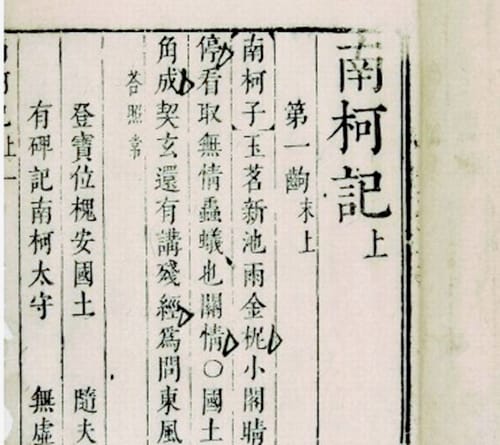 南柯記上
第一齣末上
南柯子】玉茗新池雨金柅小閣晴
停看取無情蟲蟻也關情〇國土
角成契玄還有講殘經爲問東風
答照常
登寶位槐安國土　隨夫
有碑記南柯太守　無虛